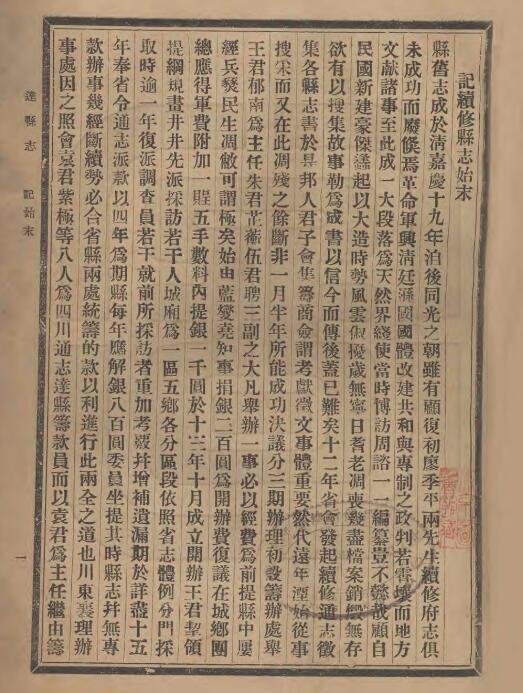 記續修縣志始末
縣舊志成於清嘉慶十九年洎後同光之朝雖有顧復初廖季平兩先生續修府志俱
未成功而廢倐焉革命軍興清廷遜國國體改建共和與專制之政判若霄壤而地方
文獻諸事至此成一大段落爲天然界綫使當時博訪周諮一一編纂豈不懿哉顧自
民國新建豪傑蠭起以大造時勢風雲俶擾歲無寧日耆老凋喪幾盡檔案銷燬無存
欲有以搜集故事勒爲成書以信今而傳後蓋已難矣十二年省會發起續修通志徵
集各縣志書於是邦人君子會集籌商僉謂考獻徵文事體重要然代遠年湮始從事
搜宷而又在此凋殘之餘斷非一月半年所能成功決議分三期辦理初設籌辦處舉
王君郁南爲主任朱君芷蘅伍君聘三副之大凡舉辦一事必以經費爲前提縣中屢
經兵燹民生凋敝可謂極矣始由藍燮堯知事捐銀二百圓爲開辦費復議在城鄉團
總應得軍費附加一賍五手數料內提銀一千圓於十三年十月成立開辦王君挈領
提綱規畫井井先派採訪若干人城廂爲一區五鄉各分區段依照省志體例分門採
取時逾一年復派調查員若干就前所採訪者重加考覈幷增補遺漏期於詳盡十五
年奉省令通志派款以四年爲期縣每年應解銀八百圓委員坐提其時縣志幷無專
款辦事幾經斷續勢必合省縣兩處統籌的款以利進行此兩全之道也川東襄理辦
事處因之照會袁君紫極等八人爲四川通志達縣籌款員而以袁君爲主任繼由籌
達縣志
記始末
一